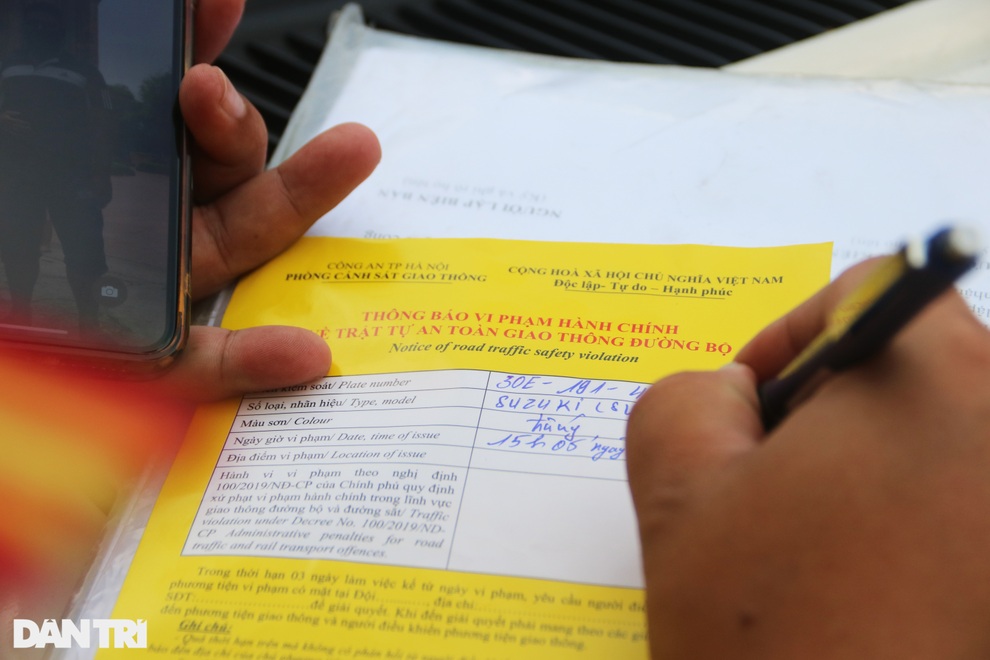 CÔNG AN TP HÀ NỘI
PHÒNG CẢNH SÁT GIAO THÔNG
CỘNG HOÀ XÃ HỘI CHỦ NGHĨA VIỆT NAM
Độc lập- Tự do – Hạnh phúc
THÔNG BÁO VI PHẠM HÀNH CHÍNH
VỀ TRẬT TỰ AN TOÀN GIAO THÔNG ĐƯỜNG BỘ
Notice of road traffic safety violation
kiểm soát/ Plate number
30E - 191 -
Số loại, nhãn hiệu/ Type, model
SUZUKI
Màu sơn/ Colour
Ngày giờ vi phạm/ Date, time of issue
15h 05 ngày
Địa điểm vi phạm/ Location of issue
Hành vi vi phạm theo nghị định
100/2019/NĐ-CP của Chính phủ quy định
xử phạt vi phạm hành chính trong lĩnh vực
giao thông đường bộ và đường sắt/ Traffic
violation under Decree No. 100/2019/NĐ-
CP Administrative penalties for road
traffic and rail transport offences.
Trong thời hạn 03 ngày làm việc kể từ ngày vi phạm, yêu cầu người
phương tiện vi phạm có mặt tại Đội........, địa chỉ
SĐT:........................để giải quyết. Khi đến giải quyết phải mang theo các
đến phương tiện giao thông và người điều khiển phương tiện giao thông.
Ghi chú:
- Quá thời hạn trên mà không có phản hồi từ người
NGƯỜI LẬP BIÊN BẢN
DÂN TRÍ